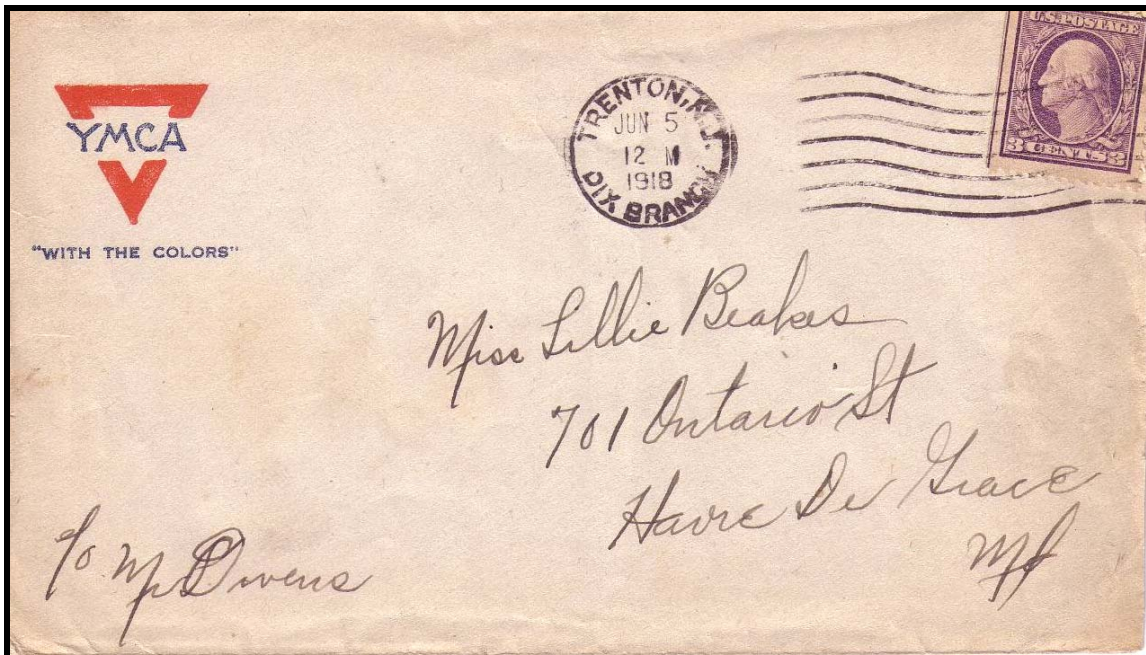 YMCA
"WITH THE COLORS"
TRENTON, N.J.
JUN 5
12 M
1918
DIX BRANCH
U.S. POSTAGE
3 CENTS 3
Miss Lillie Beakes
701 Ontario St
Havre De Grace
Md
c/o Mr Owens